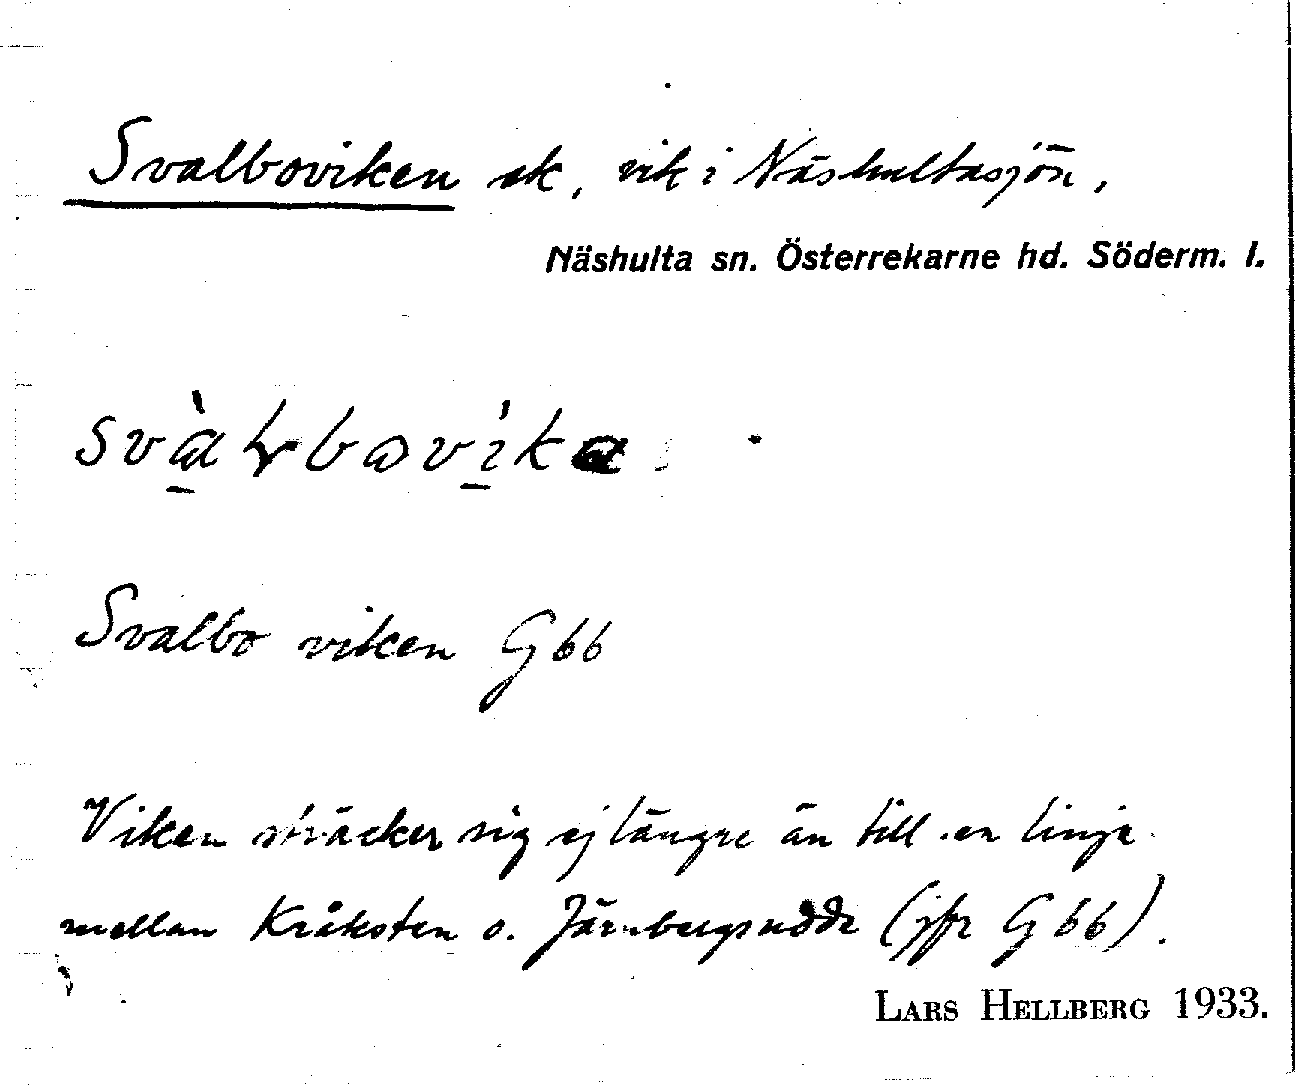 Svalboviken ek, vik i Näshultasjön,
Näshulta sn. Österrekarne hd. Söderm. l.
Svalbo viken G 66
Viken sträcker sig ej längre än till en linje
mellan Kråksten o. Järnbergsudde (jfr G 66).
LARS HELLBERG 1933.